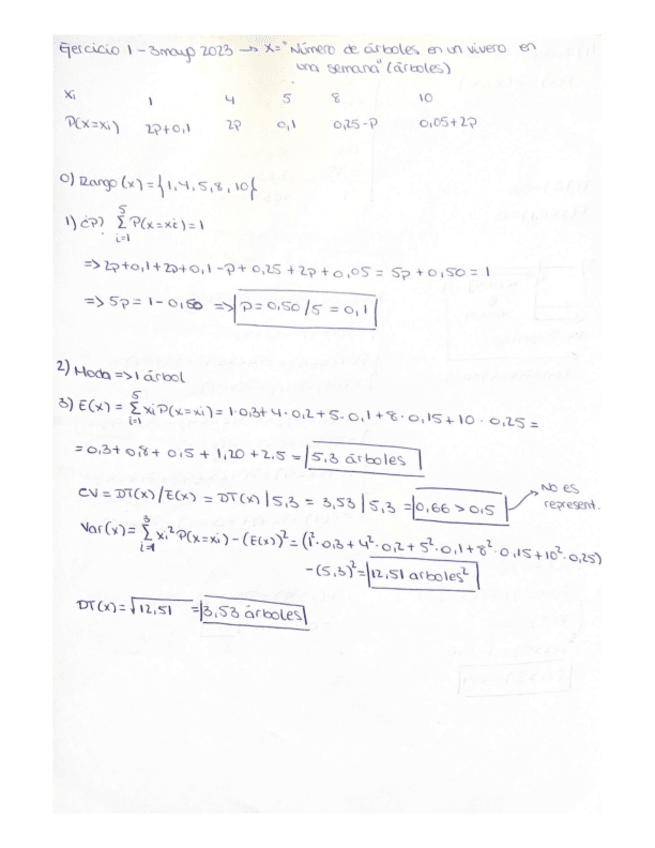 Ejercicio 1 - 3 mayo 2023 → X= "Número de árboles en un vivero en
una semana" (árboles)
xi 1 4 5 8 10
P(X=xi) 2p+0,1 2p 0,1 0,25-p 0,05+2p
0) Rango (x) = {1,4,5,8,10}
1) ¿p? 5Σi=1 P(x=xi) = 1
=> 2p+0,1+2p+0,1-p+0,25+2p+0,05 = 5p+0,50 = 1
=> 5p = 1-0,50 => p = 0,50/5 = 0,1
2) Moda => 1 árbol
3) E(x) = 5Σi=1 xi P(x=xi) = 1·0,3+4·0,2+5·0,1+8·0,15+10·0,25 =
= 0,3+0,8+0,5+1,20+2,5 = 5,3 árboles
CV = DT(x)/E(x) = DT(x)/5,3 = 3,53/5,3 = 0,66 > 0,5 → No es
represent.
Var(x) = 3Σi=1 xi² P(x=xi) - (E(x))² = (1²·0,3+4²·0,2+5²·0,1+8²·0,15+10²·0,25)
-(5,3)² = 12,51 arboles²
DT(x) = √12,51 = 3,53 árboles